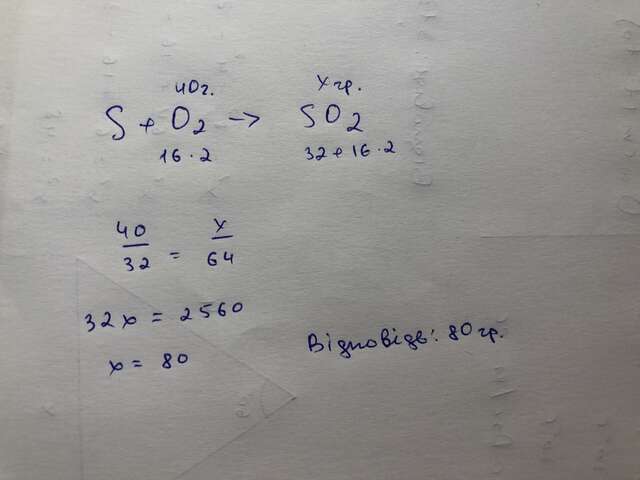 40г. х гр.
S + O2 → SO2
16·2 32+16·2
40/32 = х/64
32х = 2560
х = 80
Відповідь: 80 гр.